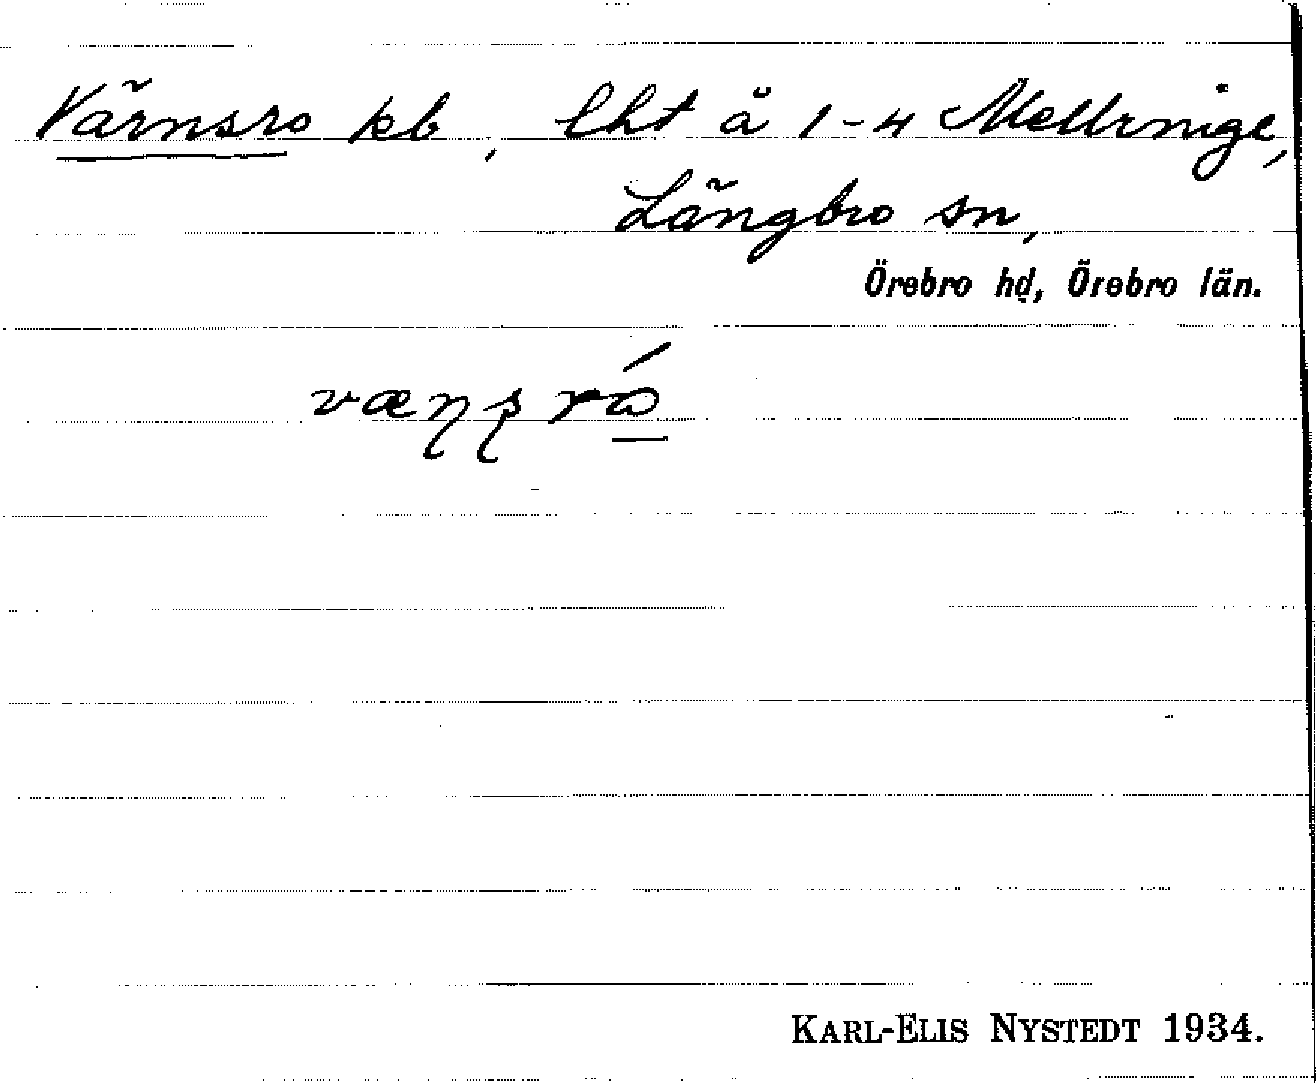 Värnsro kb, lht å 1-4 Mellringe,
Längbro sn,
Örebro hd, Örebro län.
væɳʂ ró
KARL-ELIS NYSTEDT 1934.